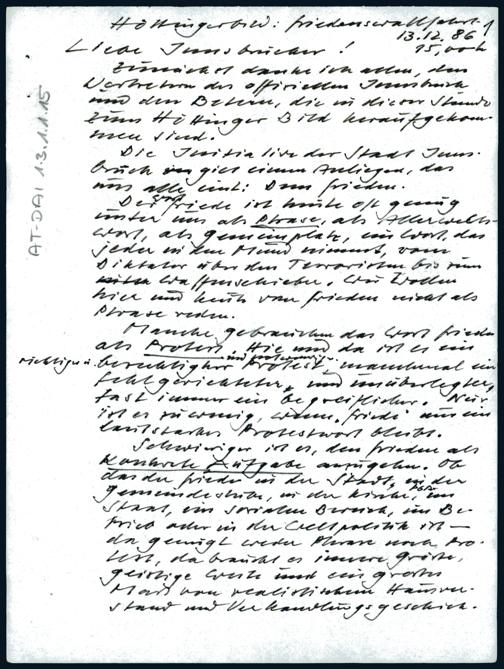 Höttingerbild: Friedenswallfahrt
13.12.86
15,00 h
Liebe Innsbrucker!
Zunächst danke ich allen, den
Vertretern des offiziellen Innsbruck
und den Betern, die in dieser Stunde
zum Höttinger Bild heraufgekom-
men sind.
Die Initiative der Stadt Inns-
bruck gilt einem Anliegen, das
uns alle eint: Dem Frieden.
Der Friede ist heute oft genug
unter uns als Phrase, als Allerwelts-
wort, als Gemeinplatz, ein Wort, das
jeder in den Mund nimmt, vom
Diktator über den Terroristen bis zum
Waffenschieber. Wir wollen
hier und heute vom Frieden nicht als
Phrase reden.
Manche gebrauchen das Wort Frieden
als Protest. Hie und da ist es ein
richtiger u.
berechtigter Protest, manchmal ein
fehlgerichteter und unüberlegter,
fast immer ein begreiflicher. Nur
ist es zu wenig, wenn "Friede" nur ein
lautstarkes Protestwort bleibt.
Schwieriger ist es, den Frieden als
konkrete Aufgabe anzugehn. Ob
das der Friede in der Stadt, in der
Gemeindestube, in der Kirche, im
Staat, im sozialen Bereich, im Be-
trieb oder in der Weltpolitik ist –
da genügt weder Phrase noch Pro-
test, da braucht es innere Größe,
geistige Weite und ein großes
Maß von realistischem Hausver-
stand und Verhandlungsgeschick.
AT-DAI 13.1.1.15